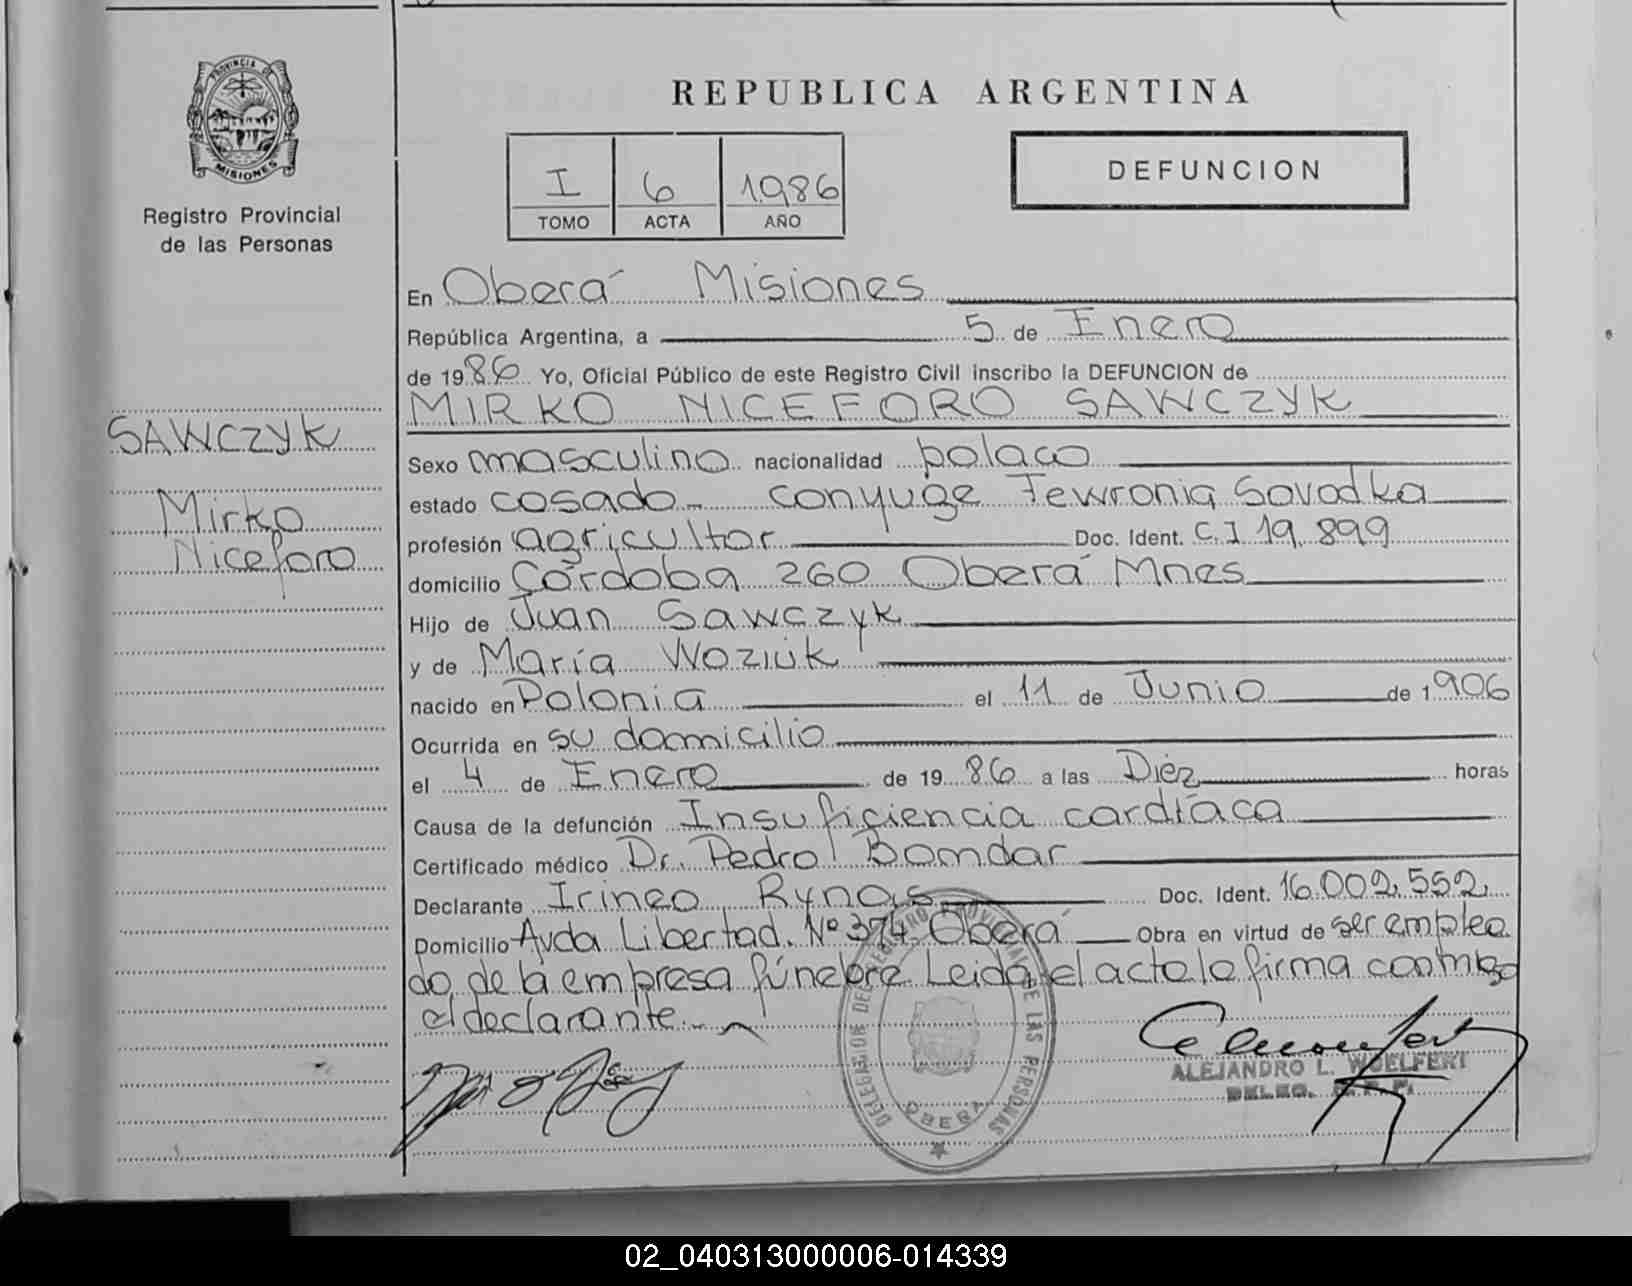 PROVINCIA DE
MISIONES
Registro Provincial
de las Personas
SAWCZYK
Mirko
Niceforo
REPUBLICA ARGENTINA
I 6 1986
TOMO ACTA AÑO
DEFUNCION
En Oberá Misiones
República Argentina, a 5 de Enero
de 1986 Yo, Oficial Público de este Registro Civil inscribo la DEFUNCION de
MIRKO NICEFORO SAWCZYK
Sexo masculino nacionalidad polaco
estado casado conyuge Tewronia Savodka
profesión agricultor Doc. Ident. C.I 19.899
domicilio Córdoba 260 Oberá Mnes
Hijo de Juan Sawczyk
y de María Woziuk
nacido en Polonia el 11 de Junio de 1906
Ocurrida en su domicilio
el 4 de Enero de 1986 a las Diéz horas
Causa de la defunción Insuficiencia cardíaca
Certificado médico Dr. Pedro Bomdar
Declarante Irineo Rynas Doc. Ident. 16.002.552
Domicilio Avda Libertad. Nº 374 Oberá Obra en virtud de ser emplea
do de la empresa fúnebre. Leida el acta la firma conmigo
el declarante.
DELEGACION DEL REGISTRO PROVINCIAL DE LAS PERSONAS
OBERA
ALEJANDRO L. WOELFERT
DELEG. R.P.P.
02_040313000006-014339